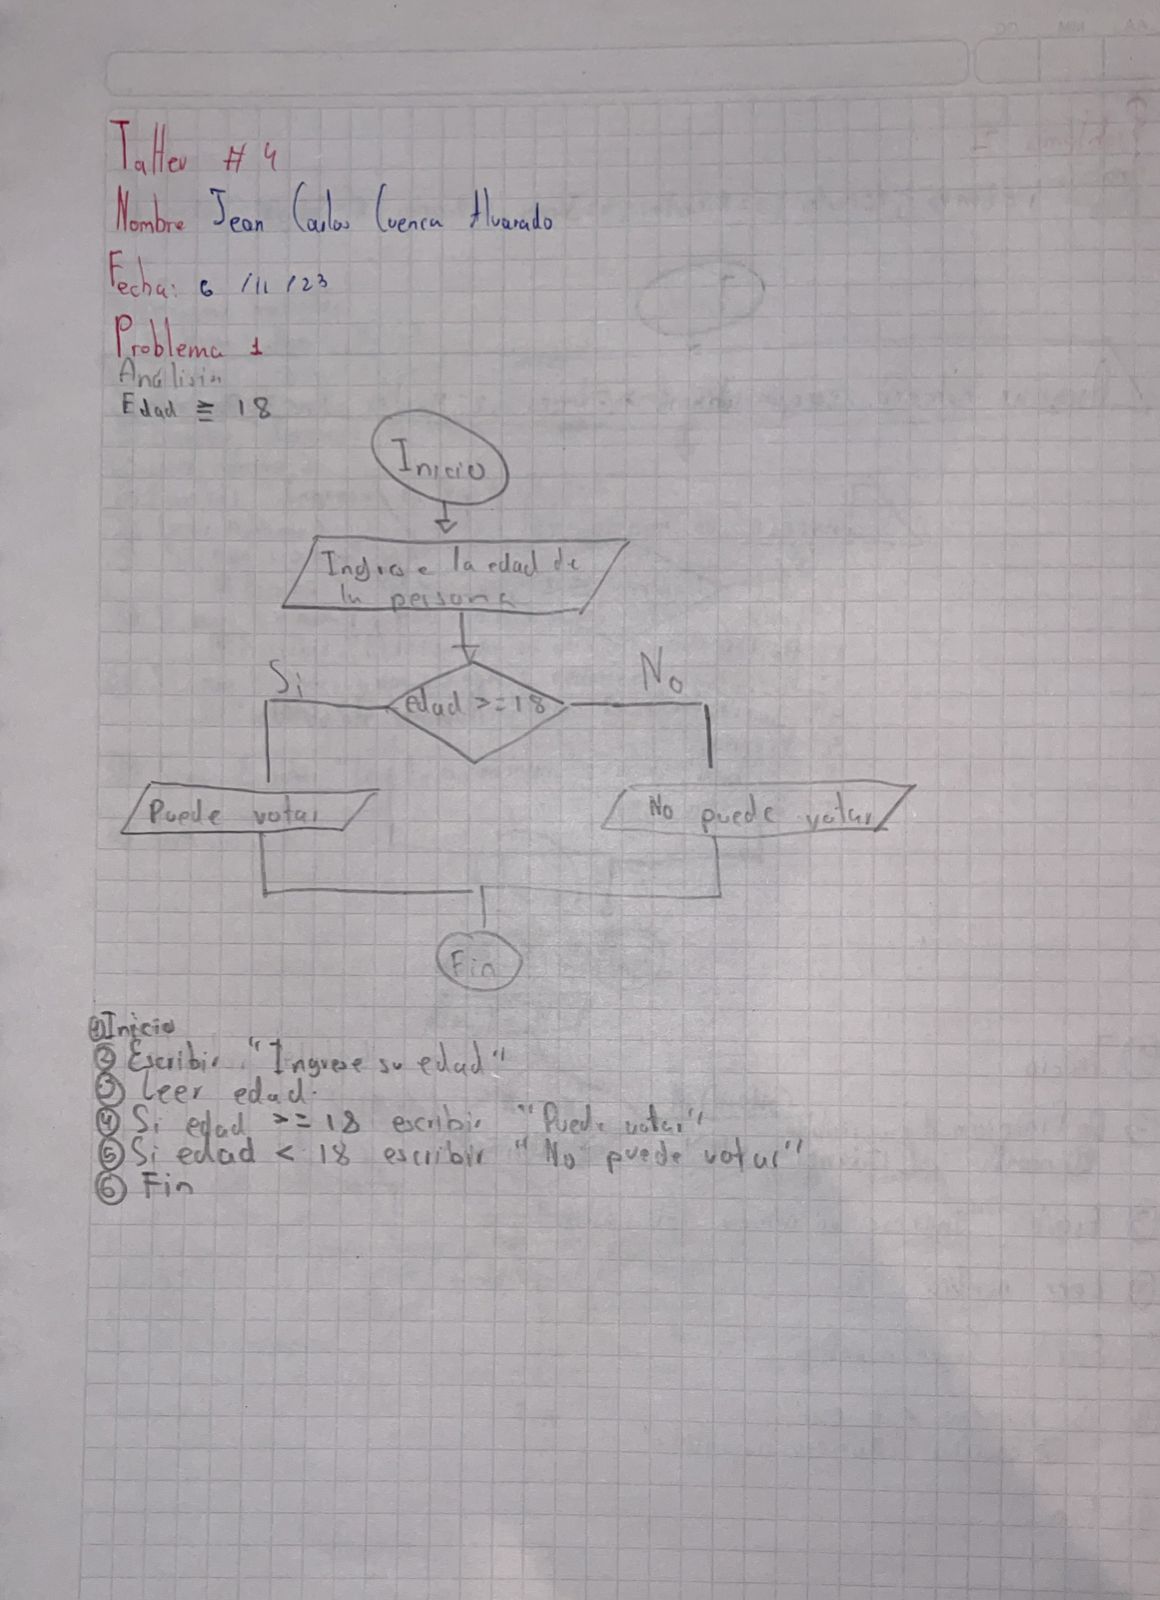 Taller # 4
Nombre Jean Carlos Cuenca Alvarado
Fecha: 6 /11 /23
Problema 1
Análisis
Edad ≥ 18
Inicio
Ingrese la edad de
la persona
Si
No
edad >= 18
Puede votar
No puede votar
Fin
① Inicio
② Escribir "Ingrese su edad"
③ Leer edad.
④ Si edad >= 18 escribir "Puede votar"
⑤ Si edad < 18 escribir "No puede votar"
⑥ Fin